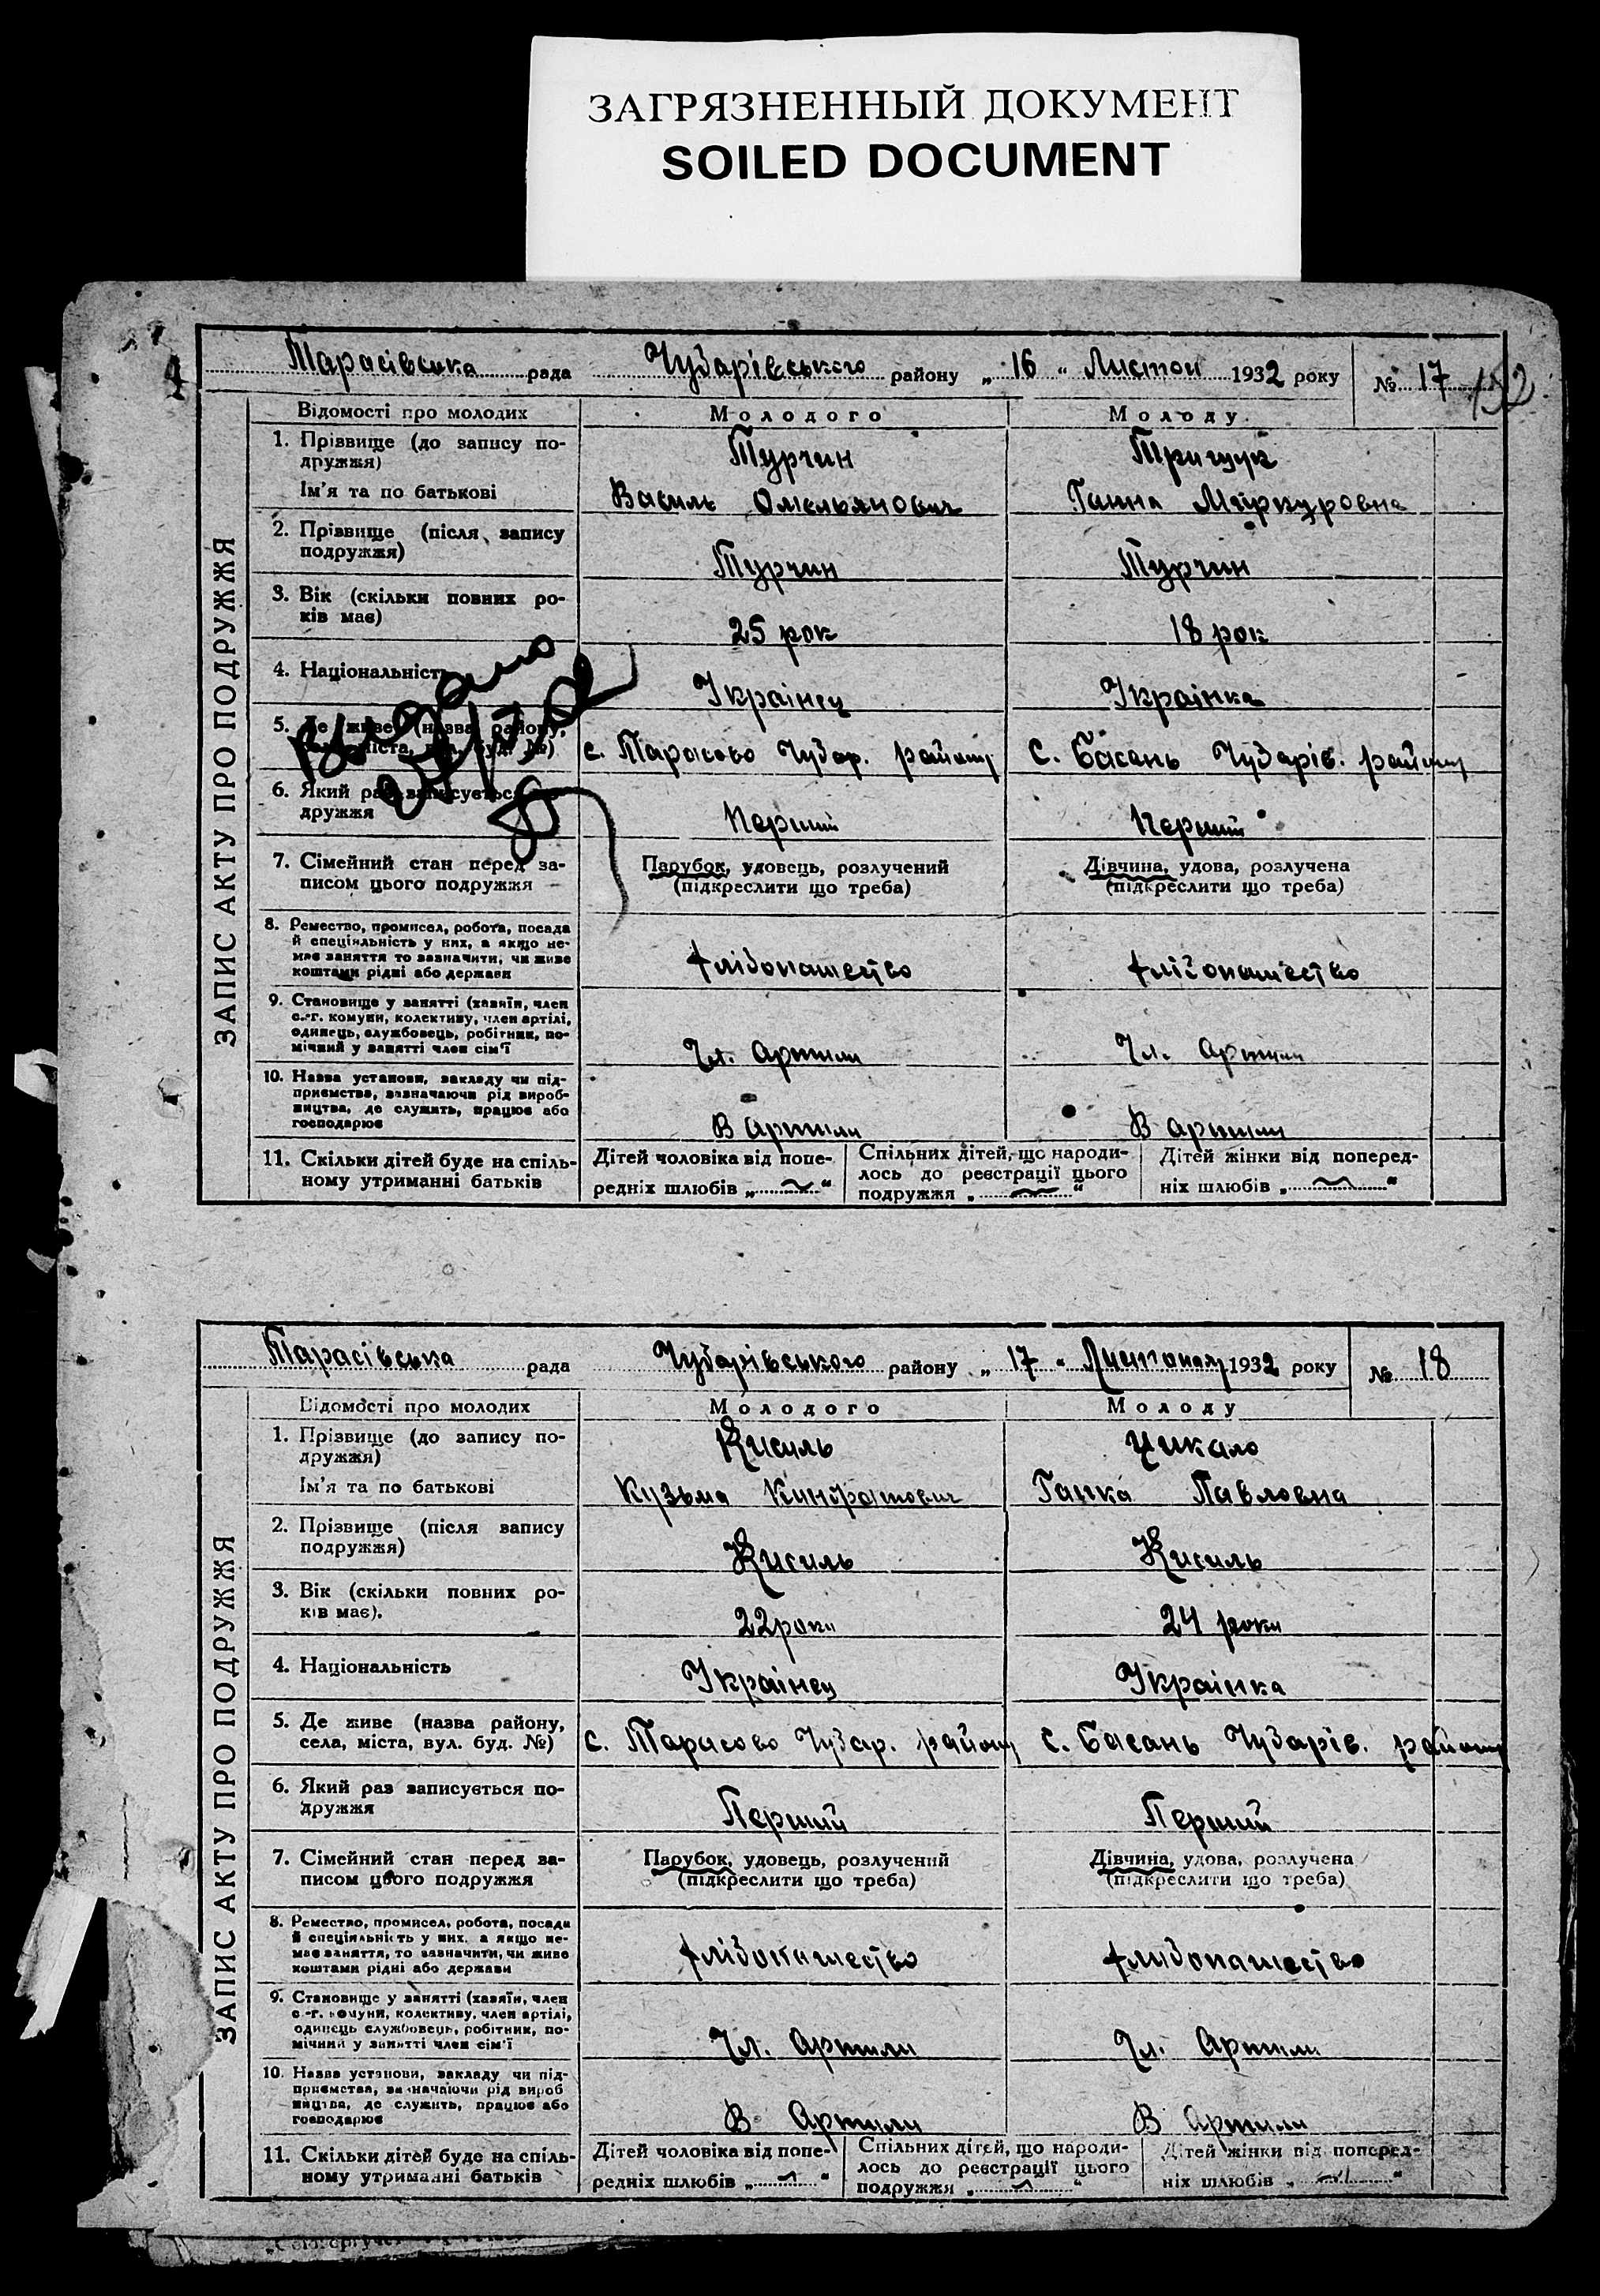 ЗАГРЯЗНЕННЫЙ ДОКУМЕНТ
SOILED DOCUMENT
Тарасівська рада Чубарівського району „ 16 “ Листоп 1932 року № 17
152
ЗАПИС АКТУ ПРО ПОДРУЖЖЯ
Відомості про молодих Молодого Молоду
1. Пріввище (до запису по-
дружжя) Турчин Грищук
Ім'я та по батькові Василь Омельянович Ганна
2. Пріввище (після запису
подружжя) Турчин Турчин
3. Вік (скільки повних ро-
ків має) 25 рок 18 рок
4. Національність Українец Українка
5. Де живе (назва району,
села, міста, вул. буд. №) с. Тарасово Чубар. району с. Басань Чубарів. району
6. Який раз записується по-
дружжя Перший Перший
Видано
7. Сімейний стан перед за-
писом цього подружжя
Парубок, удовець, розлучений
(підкреслити що треба)
Дівчина, удова, розлучена
(підкреслити що треба)
8. Ремество, промисел, робота, посада
й спеціяльність у них, а якщо не-
має заняття то зазначити, чи живе
коштами рідні або держави
хлібопашество хлібопашество
9. Становище у занятті (хазяїн, член
с.-г. комуни, колективу, член артілі,
одинець, службовець, робітник, по-
мічний у занятті член сім'ї
Чл. Артили Чл. Артили
10. Назва установи, закладу чи під-
приємства, зазначаючи рід вироб-
ництва, де служить, працює або
господарює
В Артили В Артили
11. Скільки дітей буде на спіль-
ному утриманні батьків
Дітей чоловіка від попе-
редніх шлюбів „ “
Спільних дітей, що народи-
лось до реєстрації цього
подружжя „ “
Дітей жінки від поперед-
ніх шлюбів „ “
Тарасівська рада Чубарівського району „ 17 “ Листопад 1932 року № 18
ЗАПИС АКТУ ПРО ПОДРУЖЖЯ
Відомості про молодих Молодого Молоду
1. Прізвище (до запису по-
дружжя) Кисиль Цикало
Ім'я та по батькові Кузьма Киндратович Ганка Павловна
2. Прізвище (після запису
подружжя) Кисиль Кисиль
3. Вік (скільки повних ро-
ків має). 22 роки 24 роки
4. Національність Українец Українка
5. Де живе (назва району,
села, міста, вул. буд. №) с. Тарасово Чубар. району с. Басань Чубарів. району
6. Який раз записується по-
дружжя Перший Перший
7. Сімейний стан перед за-
писом цього подружжя
Парубок, удовець, розлучений
(підкреслити що треба)
Дівчина, удова, розлучена
(підкреслити що треба)
8. Ремество, промисел, робота, посада
й спеціяльність у них, а якщо не-
має заняття, то зазначити, чи живе
коштами рідні або держави
хлібопашество хлибопашество
9. Становище у занятті (хазяїн, член
с.-г. комуни, колективу, член артілі,
одинець службовець, робітник, по-
мічний у занятті член сім'ї
Чл. Артили Чл. Артили
10. Назва установи, закладу чи під-
приємства, зазначаючи рід вироб
ництва, де служить, працює або
господарює
В Артили В Артили
11. Скільки дітей буде на спіль-
ному утриманні батьків
Дітей чоловіка від попе-
редніх шлюбів „ “
Спільних дітей, що народи-
лось до реєстрації цього
подружжя „ “
Дітей жінки від поперед-
ніх шлюбів „ “